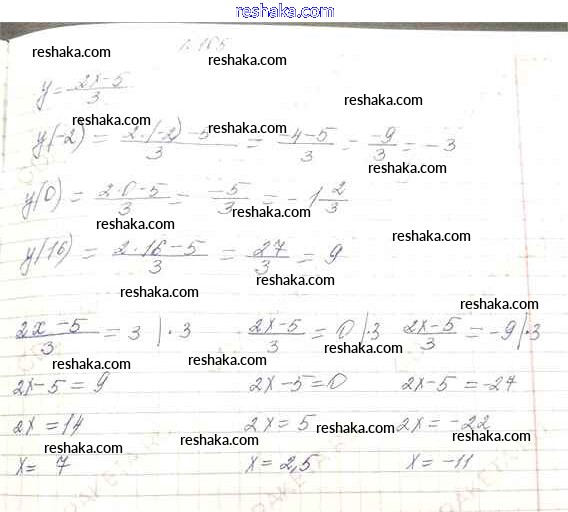 reshaka.com
reshaka.com
n 165
reshaka.com
y = (2x-5)/3
reshaka.com
reshaka.com
y(-2) = (2·(-2)-5)/3 = (-4-5)/3 = (-9)/3 = -3
reshaka.com
y(0) = (2·0-5)/3 = (-5)/3 = -1 2/3
reshaka.com
reshaka.com
y(16) = (2·16-5)/3 = 27/3 = 9
reshaka.com
reshaka.com
reshaka.com
(2x-5)/3 = 3 |·3 (2x-5)/3 = 0 |·3 (2x-5)/3 = -9 |·3
reshaka.com reshaka.com reshaka.com
2x-5 = 9 2x-5=0 2x-5 = -27
reshaka.com
2x = 14 2x = 5 2x = -22
reshaka.com reshaka.com
reshaka.com
x = 7 x = 2,5 x = -11
reshaka.com
reshaka.com